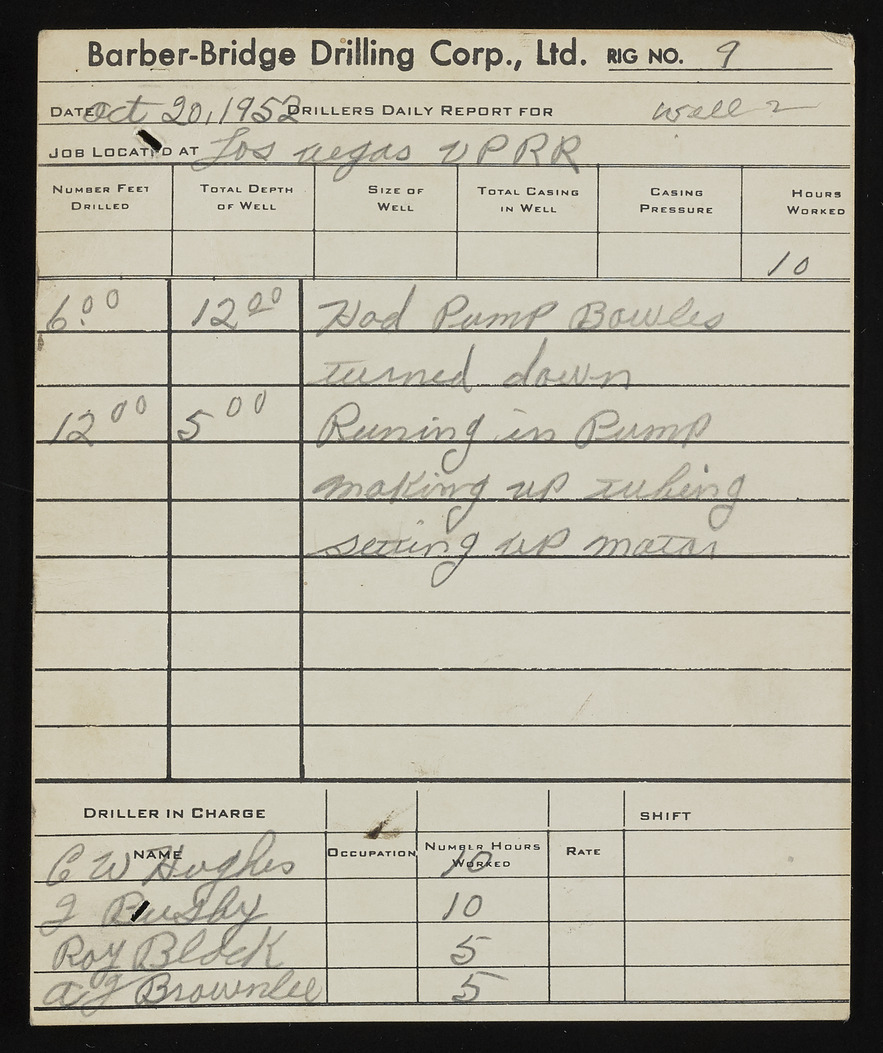 Barber-Bridge Drilling Corp., Ltd. RIG NO. 9
DATE Oct 20, 1952 DRILLERS DAILY REPORT FOR Well 2
JOB LOCATED AT Los Vegas UPRR
NUMBER FEET DRILLED TOTAL DEPTH OF WELL SIZE OF WELL TOTAL CASING IN WELL CASING PRESSURE HOURS WORKED
10
6:00 12 00 Had Pump Bowles
turned down
12 00 5 00 Runing in Pump
making up tubing
setting up motor
DRILLER IN CHARGE SHIFT
NAME OCCUPATION NUMBER HOURS WORKED RATE
C W Hughes 10
J Busby 10
Roy Block 5
a J Brownlee 5